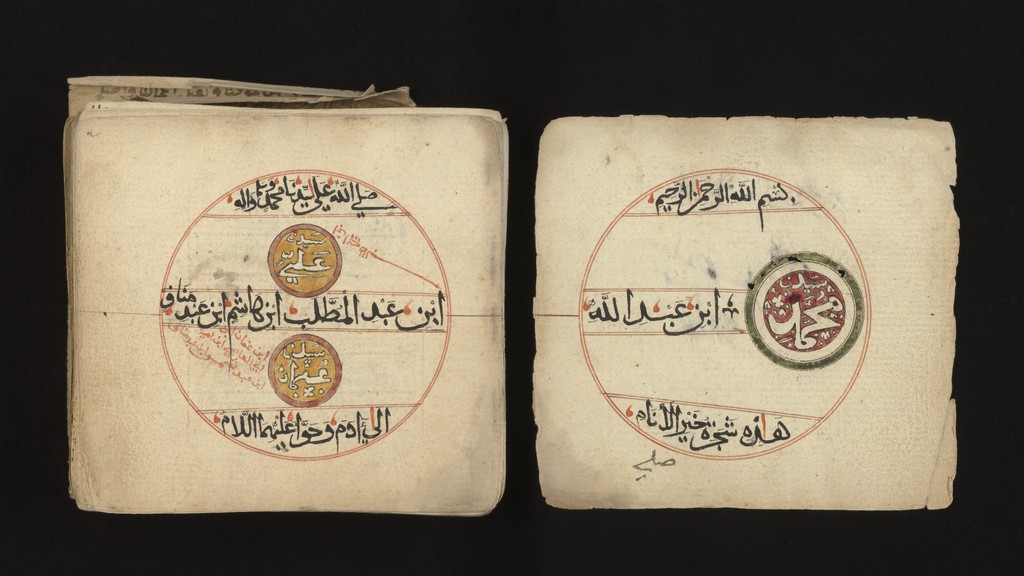 بسم الله الرحمن الرحيم
سيدنا محمد
ابن عبد الله
هذه شجرة خير الانام
صلي الله علي سيدنا محمد واله
سيدنا علي
ابن عبد المطلب ابن هاشم ابن عبد مناف
سيدنا عثمان
الي ءادم وحوا عليهما السلام